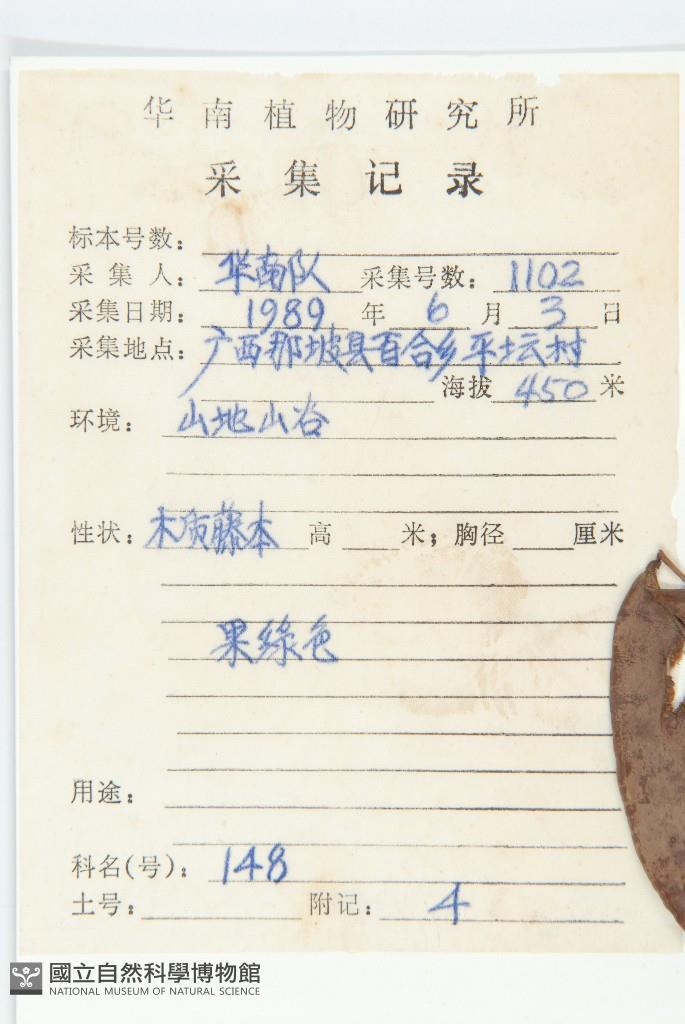 华南植物研究所
采集记录
标本号数：
采集人：华南队 采集号数：1102
采集日期：1989年6月3日
采集地点：广西那坡县百合乡平坛村
海拔 450 米
环境：山地山谷
性状：木质藤本 高 米；胸径 厘米
果綠色
用途：
科名(号)：148
土号： 附记：4
國立自然科學博物館
NATIONAL MUSEUM OF NATURAL SCIENCE